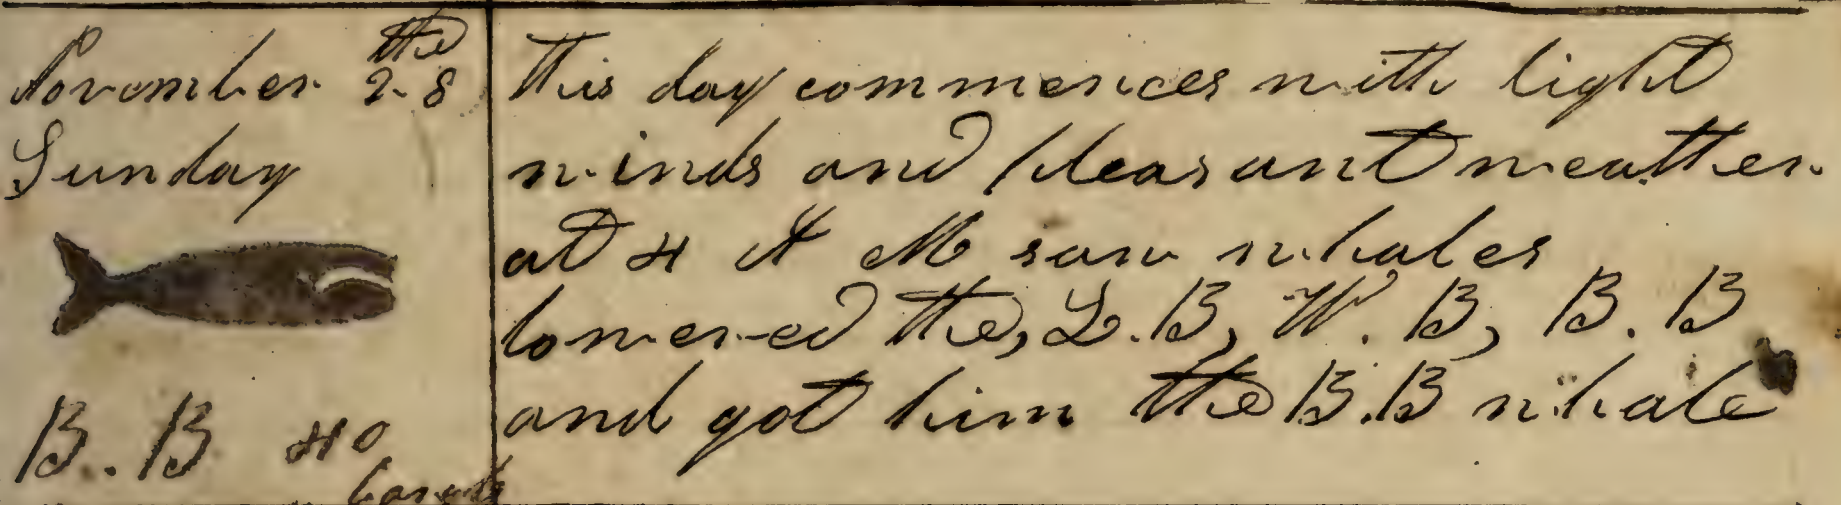 November the 28
Sunday
B.B 40
barrels
This day commences with light
winds and pleasant weather
at 4 A M saw whales
lowered the, L.B, W.B, B.B
and got him the B.B whale